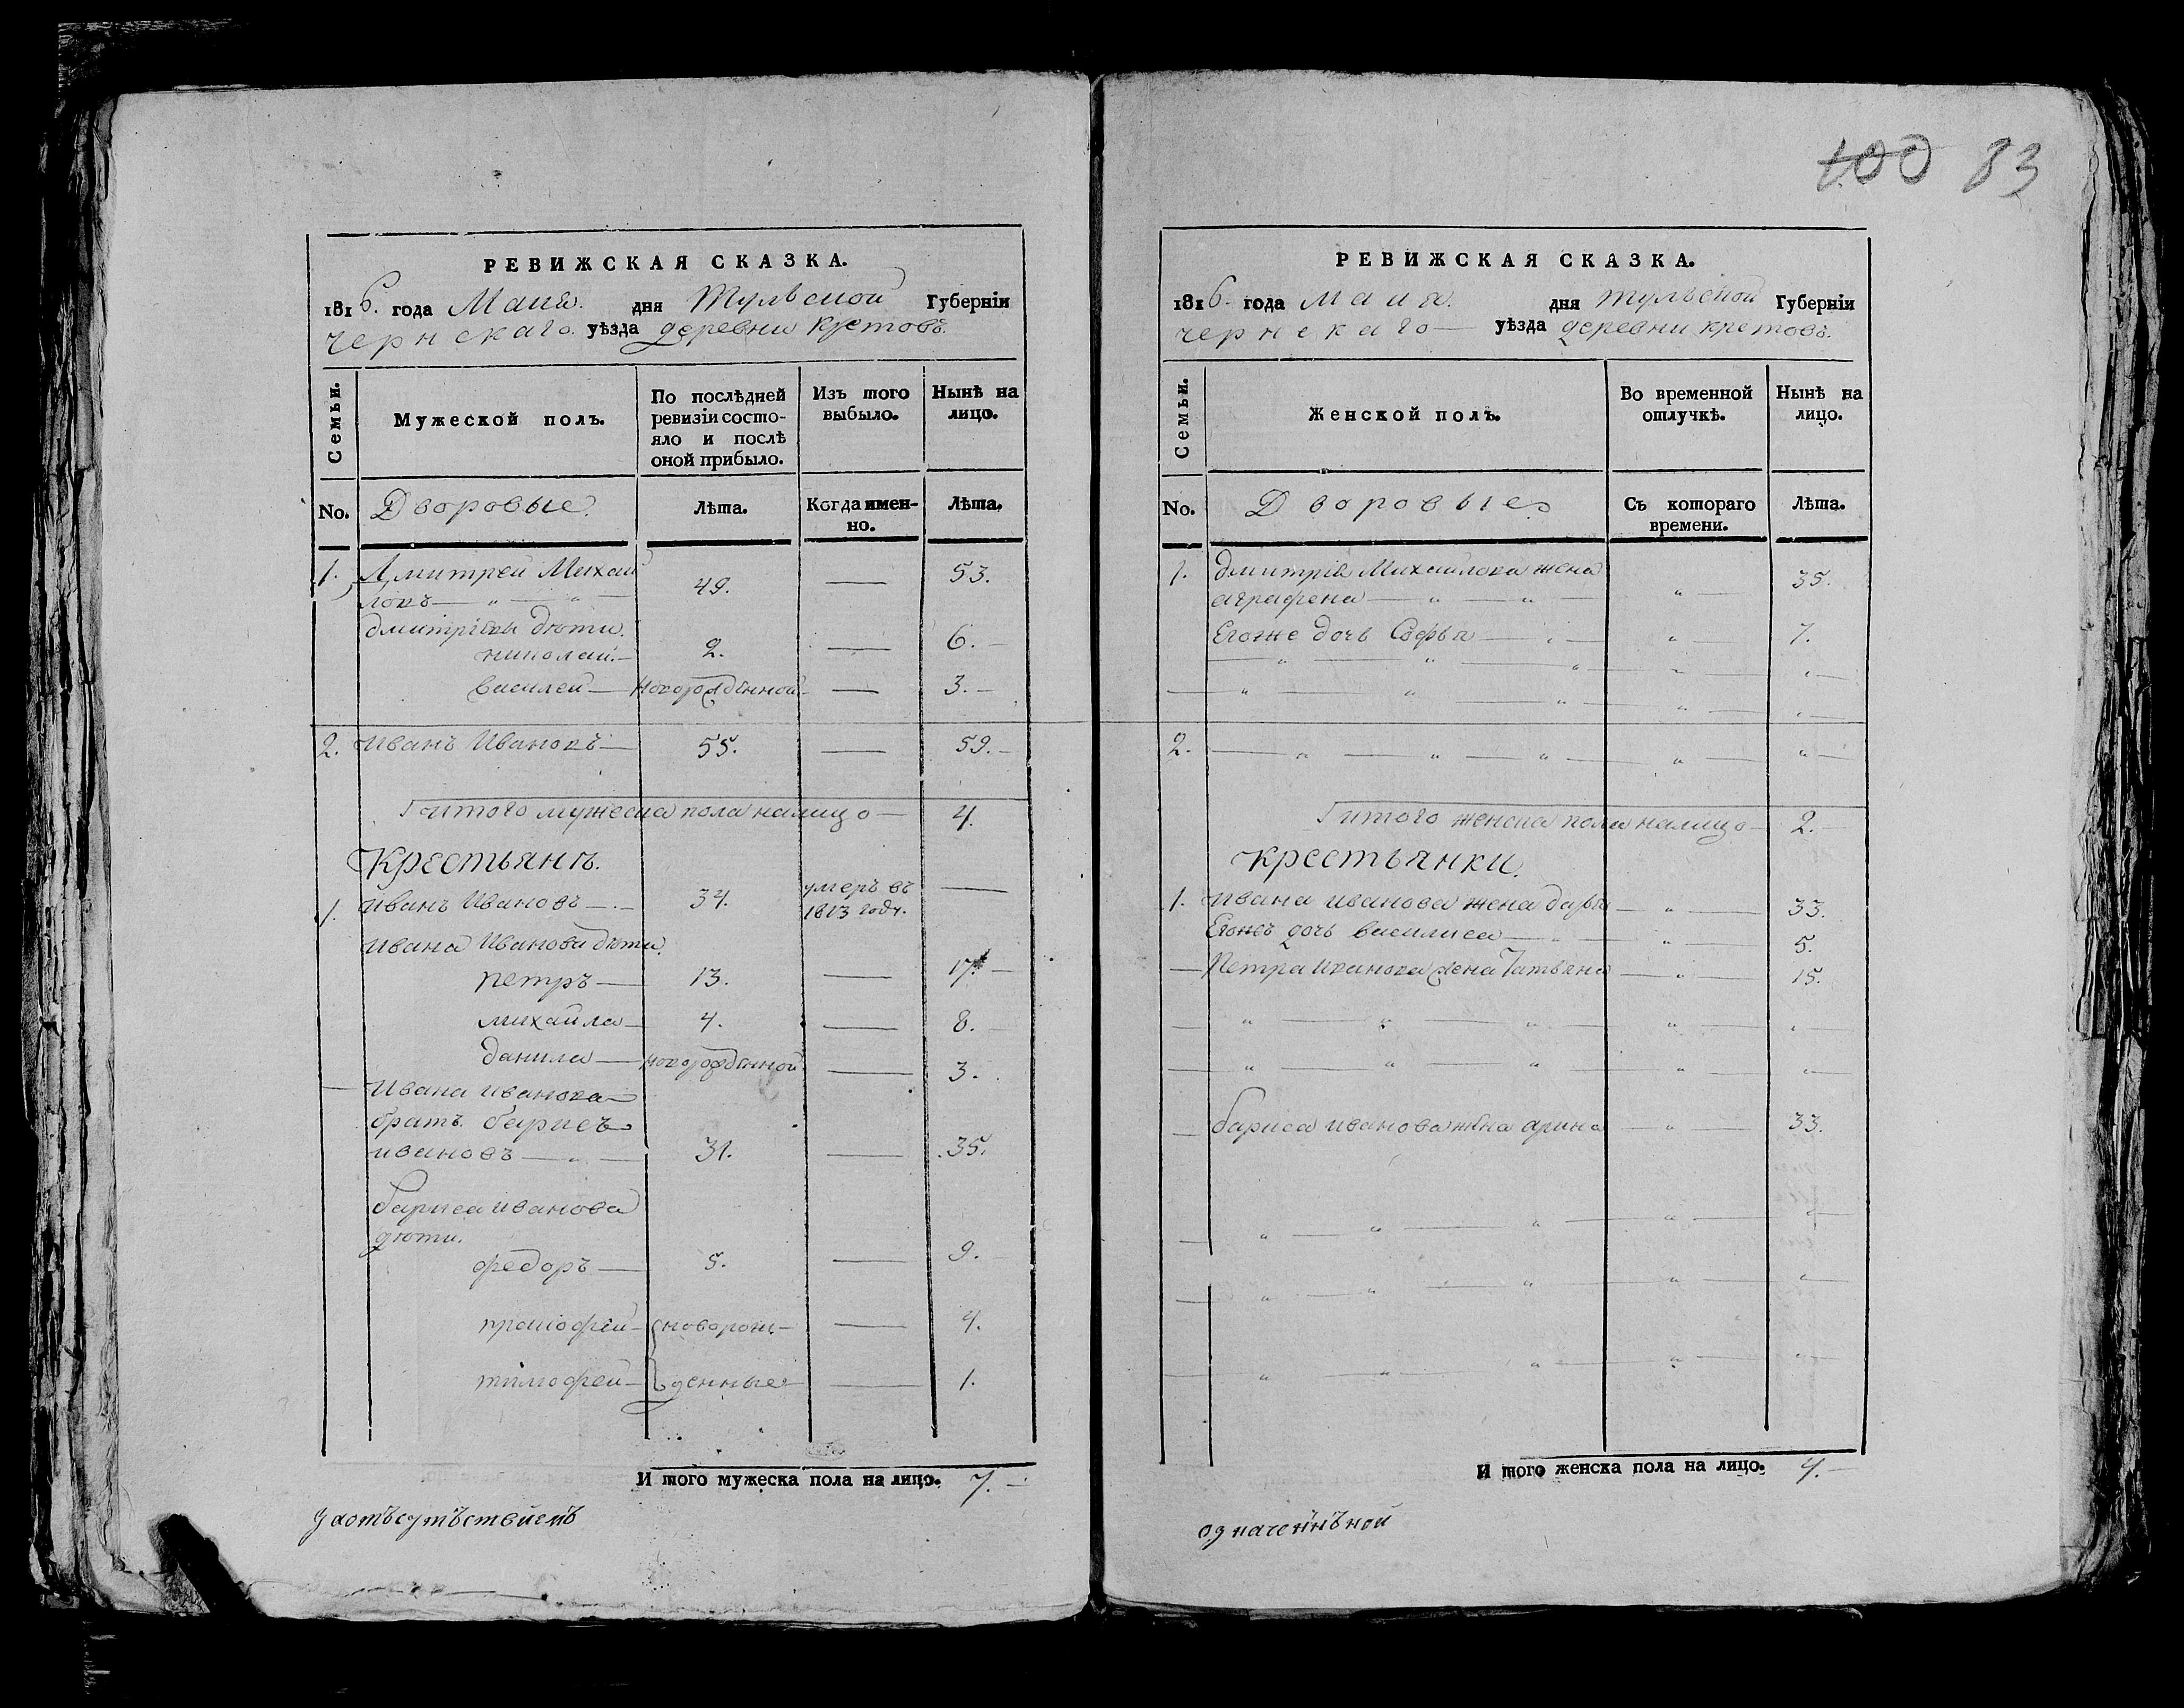 100 83
РЕВИЖСКАЯ СКАЗКА.
1816. года Маия. дня Тульской Губерніи
чернскаго уѣзда деревни Кретовъ.
Семьи.
Мужеской полъ.
По послѣдней ревизіи состо-
яло и послѣ
оной прибыло.
Изъ того
выбыло.
Нынѣ на
лицо.
No. Дворовые. Лѣта. Когда имен-
но. Лѣта.
1. Дмитрей Михай
ловъ — " — " — 49. — 53.
дмитріевы дѣти.
николай. — 2. — 6. —
василей — новорожденной — — 3. —
2. Иванъ Ивановъ — 55. — 59. —
итого мужеска пола налицо — 4.
Крестьянъ.
1. иванъ Ивановъ — 34. умеръ въ
1813 году. —
ивана Иванова дѣти.
петръ — 13. — 17. —
михайла — 4. — 8. —
данила — новорожденной — 3. —
Ивана иванова
братъ барисъ
ивановъ — " — 31. — 35.
бариса иванова
дѣти.
федоръ — 5. — 9.
прокофей — новорож- — 4.
тимофей — денные — 1.
И того мужеска пола на лицо. 7. —
заотъсутъствиемъ
РЕВИЖСКАЯ СКАЗКА.
1816 года маия. дня тульской Губерніи
чернскаго — уѣзда деревни кретовъ.
Семьи.
Женской полъ.
Во временной
отлучкѣ.
Нынѣ на
лицо.
No. Дворовые Съ котораго
времени. Лѣта.
1. дмитрія Михайлова жена
аграфена — " — " — " — 35.
Егоже дочь Софья — " — " — 7.
2. — " — " — " — " — " —
итого женска пола налицо — 2. —
крестьянки.
1. ивана иванова жена дарья — " — 33.
Егожъ дочь василиса — " — " — 5.
— Петра иванова жена Татьяна — " — 15.
— бариса иванова жена арина — " — 33.
И того женска пола на лицо. 4. —
означенънъной